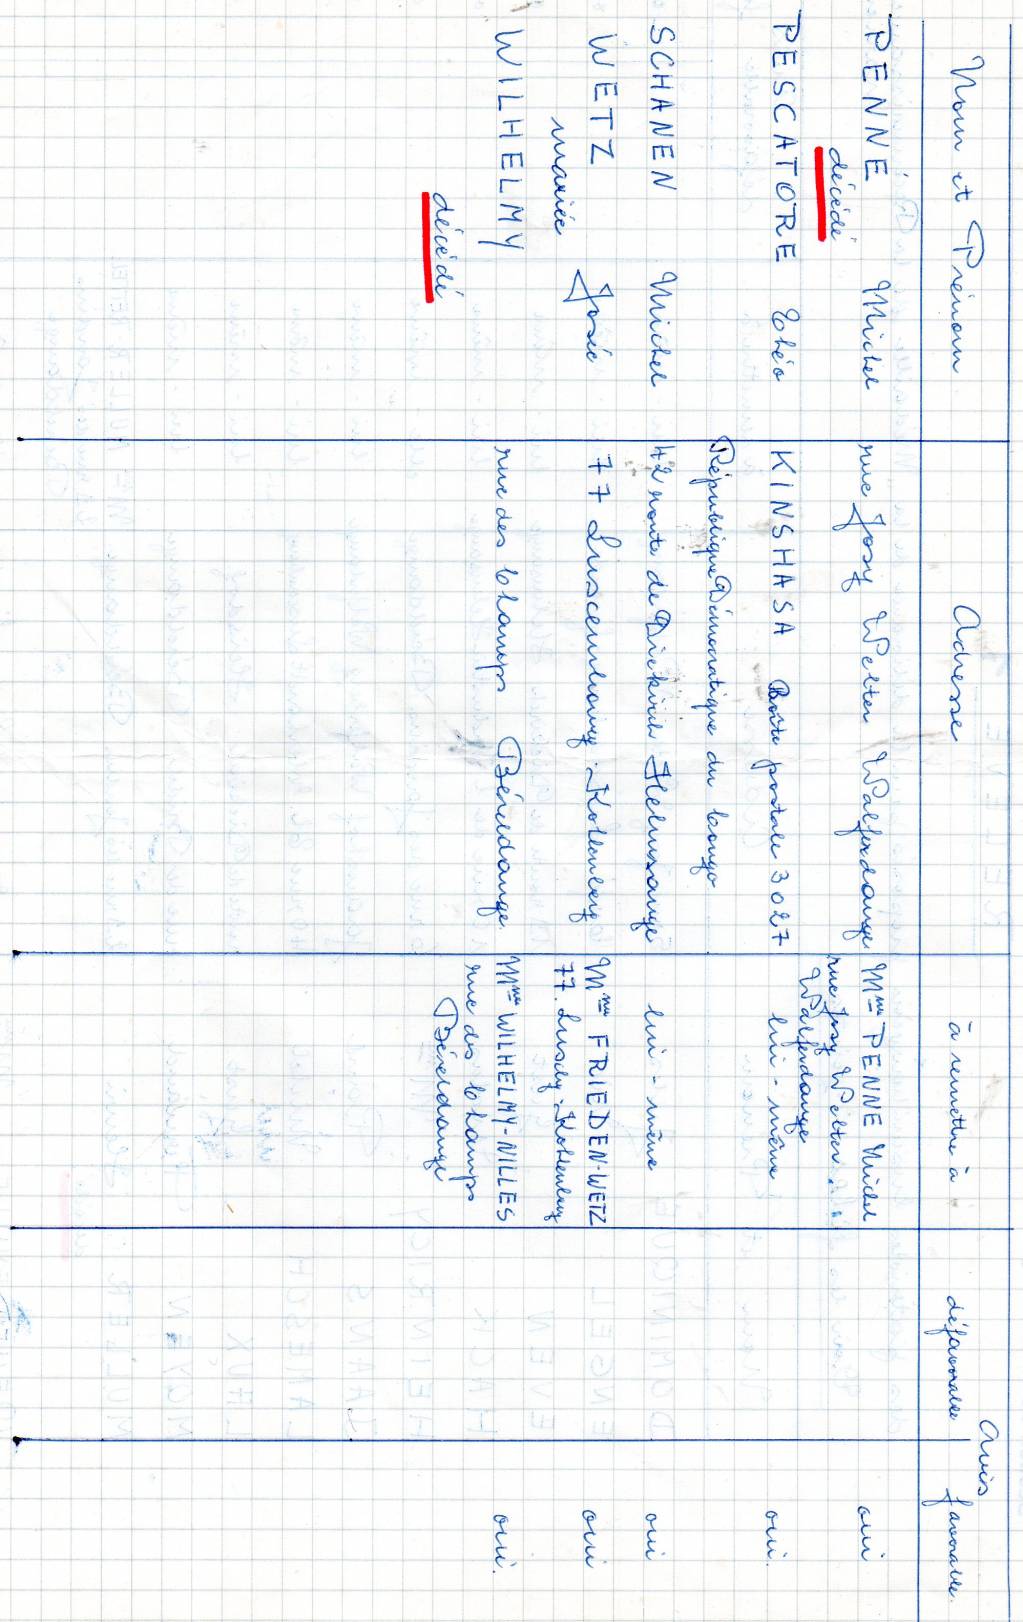 Nom et Prénom Adresse à remettre à Avis
défavorable favorable
PENNE Michel rue Josy Welter Walferdange Mme PENNE Michel oui
décédé rue Josy Welter
Walferdange
PESCATORE Théo KINSHASA Boîte postale 3027 lui-même oui.
République Démocratique du Congo
SCHANEN Michel 42 route de Diekirch Helmsange lui-même oui
WETZ Josée 77 Luxembourg-Kohlenberg Mme FRIEDEN-WETZ oui
mariée 77. Luxbg-Kohlenberg
WILHELMY rue des Champs Béreldange. Mme WILHELMY-NILLES oui.
décédé rue des Champs
Béreldange